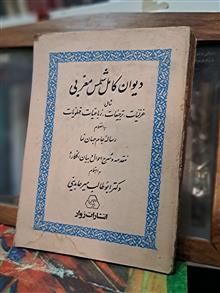 دیوان کامل شمس مغربی
شامل
غزلیات، ترجیعات، رباعیات، فهلویات
به انضمام
رساله جام جهان نما
مقدمه و شرح احوال و بیان افکار
به اهتمام
دکتر ابوطالب میرعابدینی
انتشارات زوار